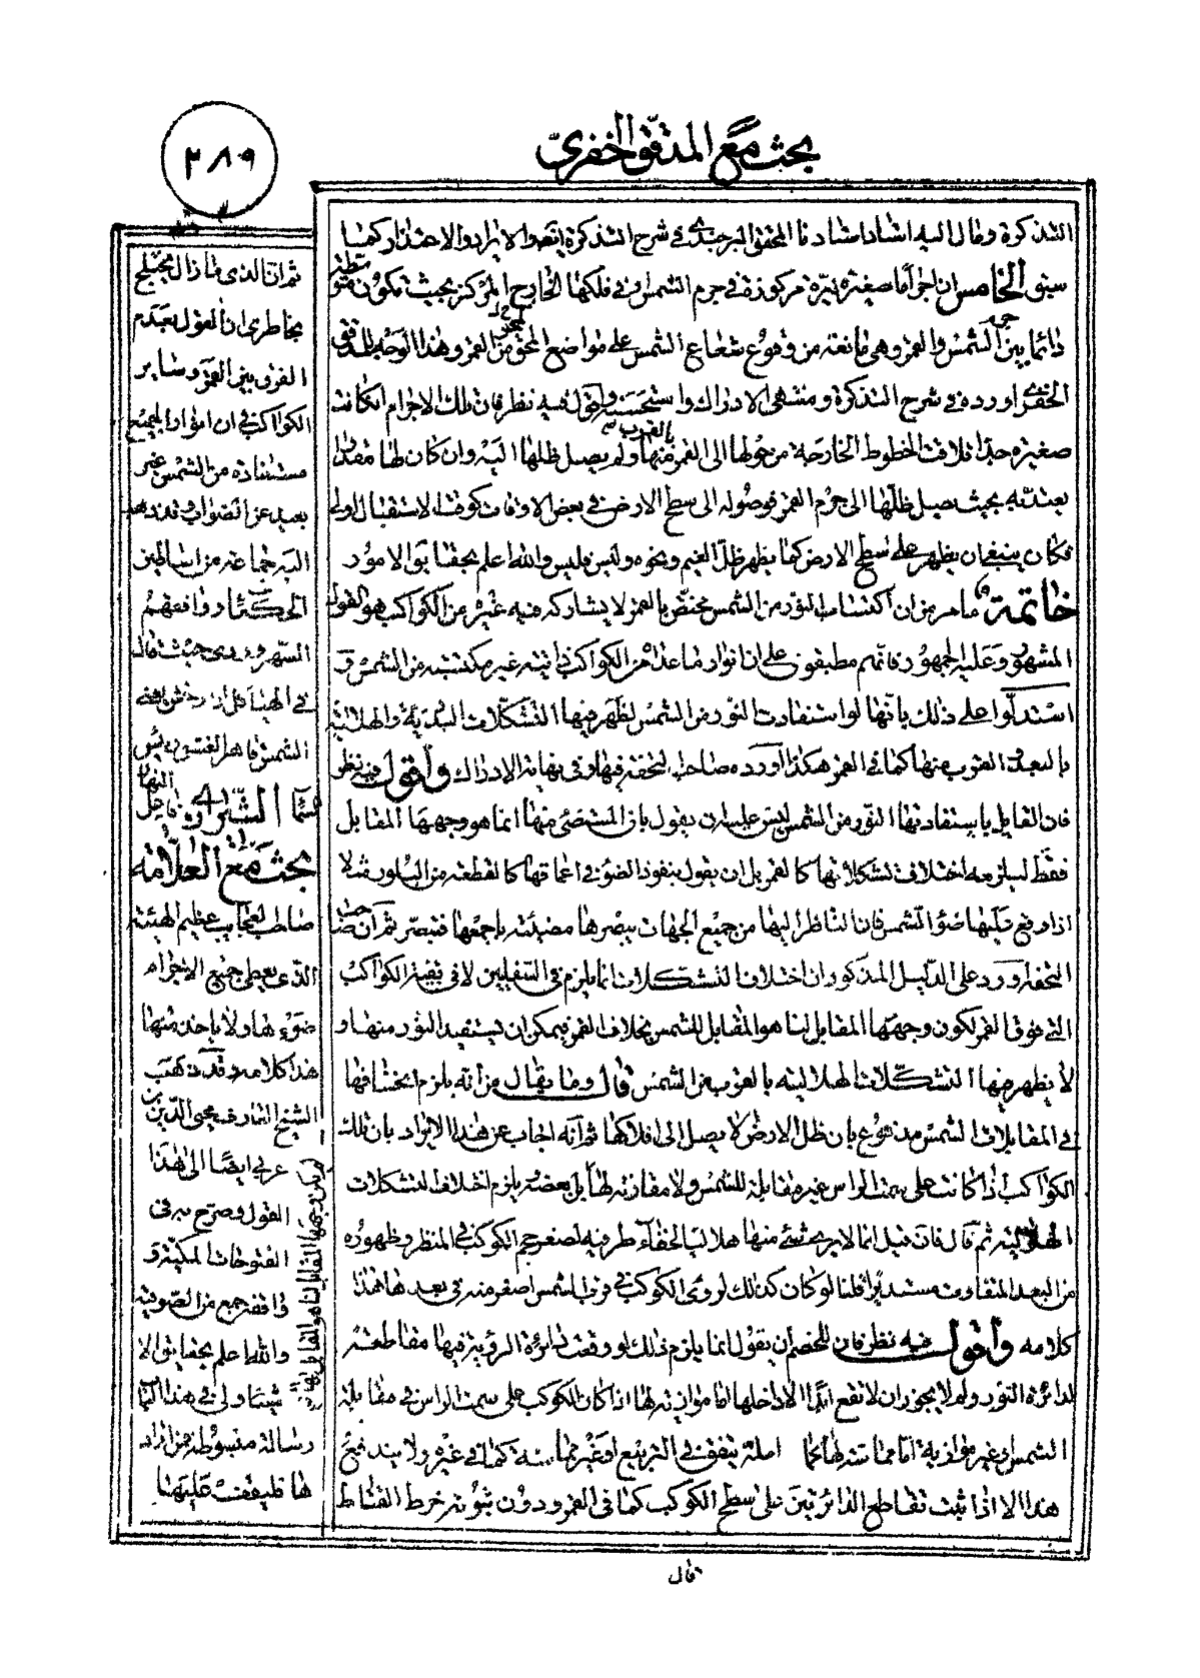 بحث مع المدقق الخفرىّ
٢٨٩
التذكرة وقال اليه اشار استادنا المحقق البرجندى فى شرح التذكرة انتهى الايراد والاعتذار كما
سبق الخامس ان اجراما صغيرة نيّرة مركوزة فى جرم الشمس او فى فلكها الخارج المركز بحيث تكون متوسطة
دائما بين جرمى الشمس والقمر وهى مانعة من وقوع شعاع الشمس على مواضع المحو من القمر وهذا الوجه للمدقق
الخفرى اورده فى شرح التذكرة ومنتهى الادراك واستحسنه واقول فيه نظر فان تلك الاجرام ان كانت
صغيرة جدا تلاقت الخطوط الخارجة من حولها الى القمر بالقرب منها ولم يصل ظلها اليه وان كان لها مقدار
يعتدّ به بحيث يصل ظلّها الى جرم القمر فوصوله الى سطح الارض فى بعض الاوقات كوقت الاستقبال اولى
فكان ينبغى ان يظهر على سطح الارض كما يظهر ظلّ الغيم ونحوه وليس فليس والله اعلم بحقايق الامور
خاتمة ما مر من ان اكتساب النور من الشمس مختصّ بالقمر لا يشاركه فيه غيره من الكواكب هو القول
المشهور وعليه الجمهور فانهم مطبقون على ان انوار ما عداه من الكواكب ذاتية غير مكتسبة من الشمس و
استدلّوا على ذلك بانّها لو استفادت النور من الشمس لظهر فيها التشكّلات البدريّة والهلاليّة
بالبعد والقرب منها كما فى القمر هكذا اورده صاحب التحفة فيها وفى نهاية الادراك واقول فيه نظر
فان القايل باستفادتها النّور من الشمس ليس عليه ان يقول بان المستضئ منها انما هو وجهها المقابل
فقط ليلزمه اختلاف تشكلاتها كالقمر بل ان يقول بنفوذ الضوء فى اعماقها كالقطعة من البلور مثلا
اذا وقع عليها ضوء الشمس فان الناظر اليها من جميع الجهات يبصرها مضيئة باجمعها فتبصّر ثم ان صاحب
التحفة اورد على الدّليل المذكور ان اختلاف التشكلات انما يلزم فى السفليين لا فى بقية الكواكب
التى فوق القمر لكون وجهها المقابل لنا هو المقابل للشمس بخلاف القمر فيمكن ان يستفيد النور منها و
لا يظهر فيها التشكّلات الهلالية بالقرب من الشمس قال وما يقال من انه يلزم انخسافها
فى المقابلات الشمس مدفوع بان ظل الارض لا يصل الى افلاكها ثم انه اجاب عن هذا الايراد بان تلك
الكواكب اذا كانت على سمت الراس غير مقابلة للشمس ولا مقارنة لها بل بعضه يلزم اختلاف التشكلات
الهلالية ثم قال فان قيل انما لا يرى شئ منها هلاليا لخفاء طرفيه لصغر حجم الكوكب فى المنظر وظهوره
من البعد المتفاوت مستديرا قلنا لو كان كذلك لرؤى الكوكب فى قرب الشمس اصغر منه فى بعدها هذا
كلامه واقول فيه نظر فان للخصم ان يقول انما يلزم ذلك لو وقعت دائرة الرؤية فيها مقاطعة
لدائرة النور ولم لا يجوز ان لا تقع ابدا الا داخلها اما موازية لها اذا كان الكوكب على سمت الراس فى مقابلة
الشمس او غير موازية اما مماسة لها كما املة يتفق فى التربيع او غير مماسة كما فى غيره ولا يندفع
هذا الا اذا ثبت تقاطع الدائرتين على سطح الكوكب كما فى القمر ودون ثبوته خرط القتاد
ثم ان الذى ما زال يختلج
بخاطرى ان القول بعدم
الفرق بين القمر وساير
الكواكب فى ان انوار الجميع
مستفادة من الشمس غير
بعيد عن الصواب وقد ذهب
اليه جماعة من اساطين
الحكماء ووافقهم
السهروردى حيث قال
فى الهياكل ان رخش يعنى
الشمس قاهر الغسق رئيس
السماء فاعل النهار
بحث مع العلّامة الشيرازى
صاحب العجايب عظيم الهيئة
الذى يعطى جميع الاجرام
ضوءها ولا ياخذ منها
هذا كلامه وقد ذهب
الشيخ العارف محيى الدّين بن
عربى ايضا الى هذا
القول وصرح به فى
الفتوحات المكية و
وافقه جمع من الصوفية
والله اعلم بحقايق الا
شياء ولى فى هذا الباب
رسالة مبسوطة من اراد
ها فليقف عليها
قال